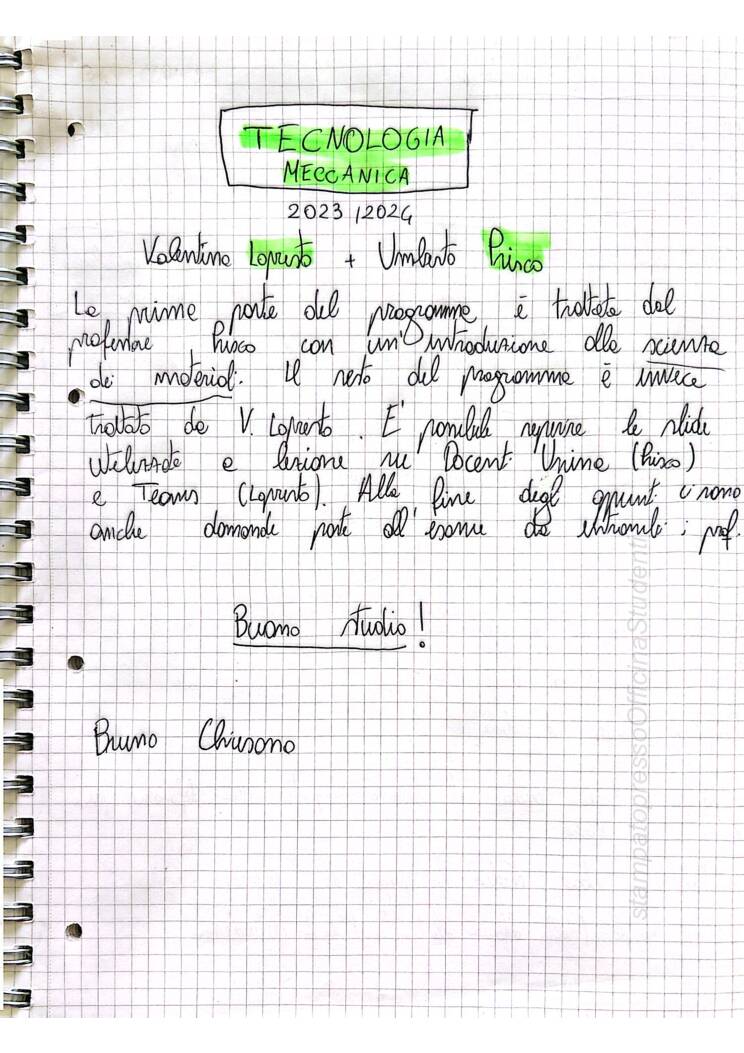 TECNOLOGIA
MECCANICA
2023/2024
Valentina Lopresto + Umberto Prisco
La prima parte del programma è trattata dal
professore Prisco con un'introduzione alla scienza
dei materiali. Il resto del programma è invece
trattato da V. Lopresto. E' possibile reperire le slide
utilizzate a lezione su Docenti Unina (Prisco)
e Teams (Lopresto). Alla fine degli appunti ci sono
anche domande poste all'esame da entrambi i prof.
Buono studio!
Bruno Chiusano
stampatopressoOfficinaStudenti